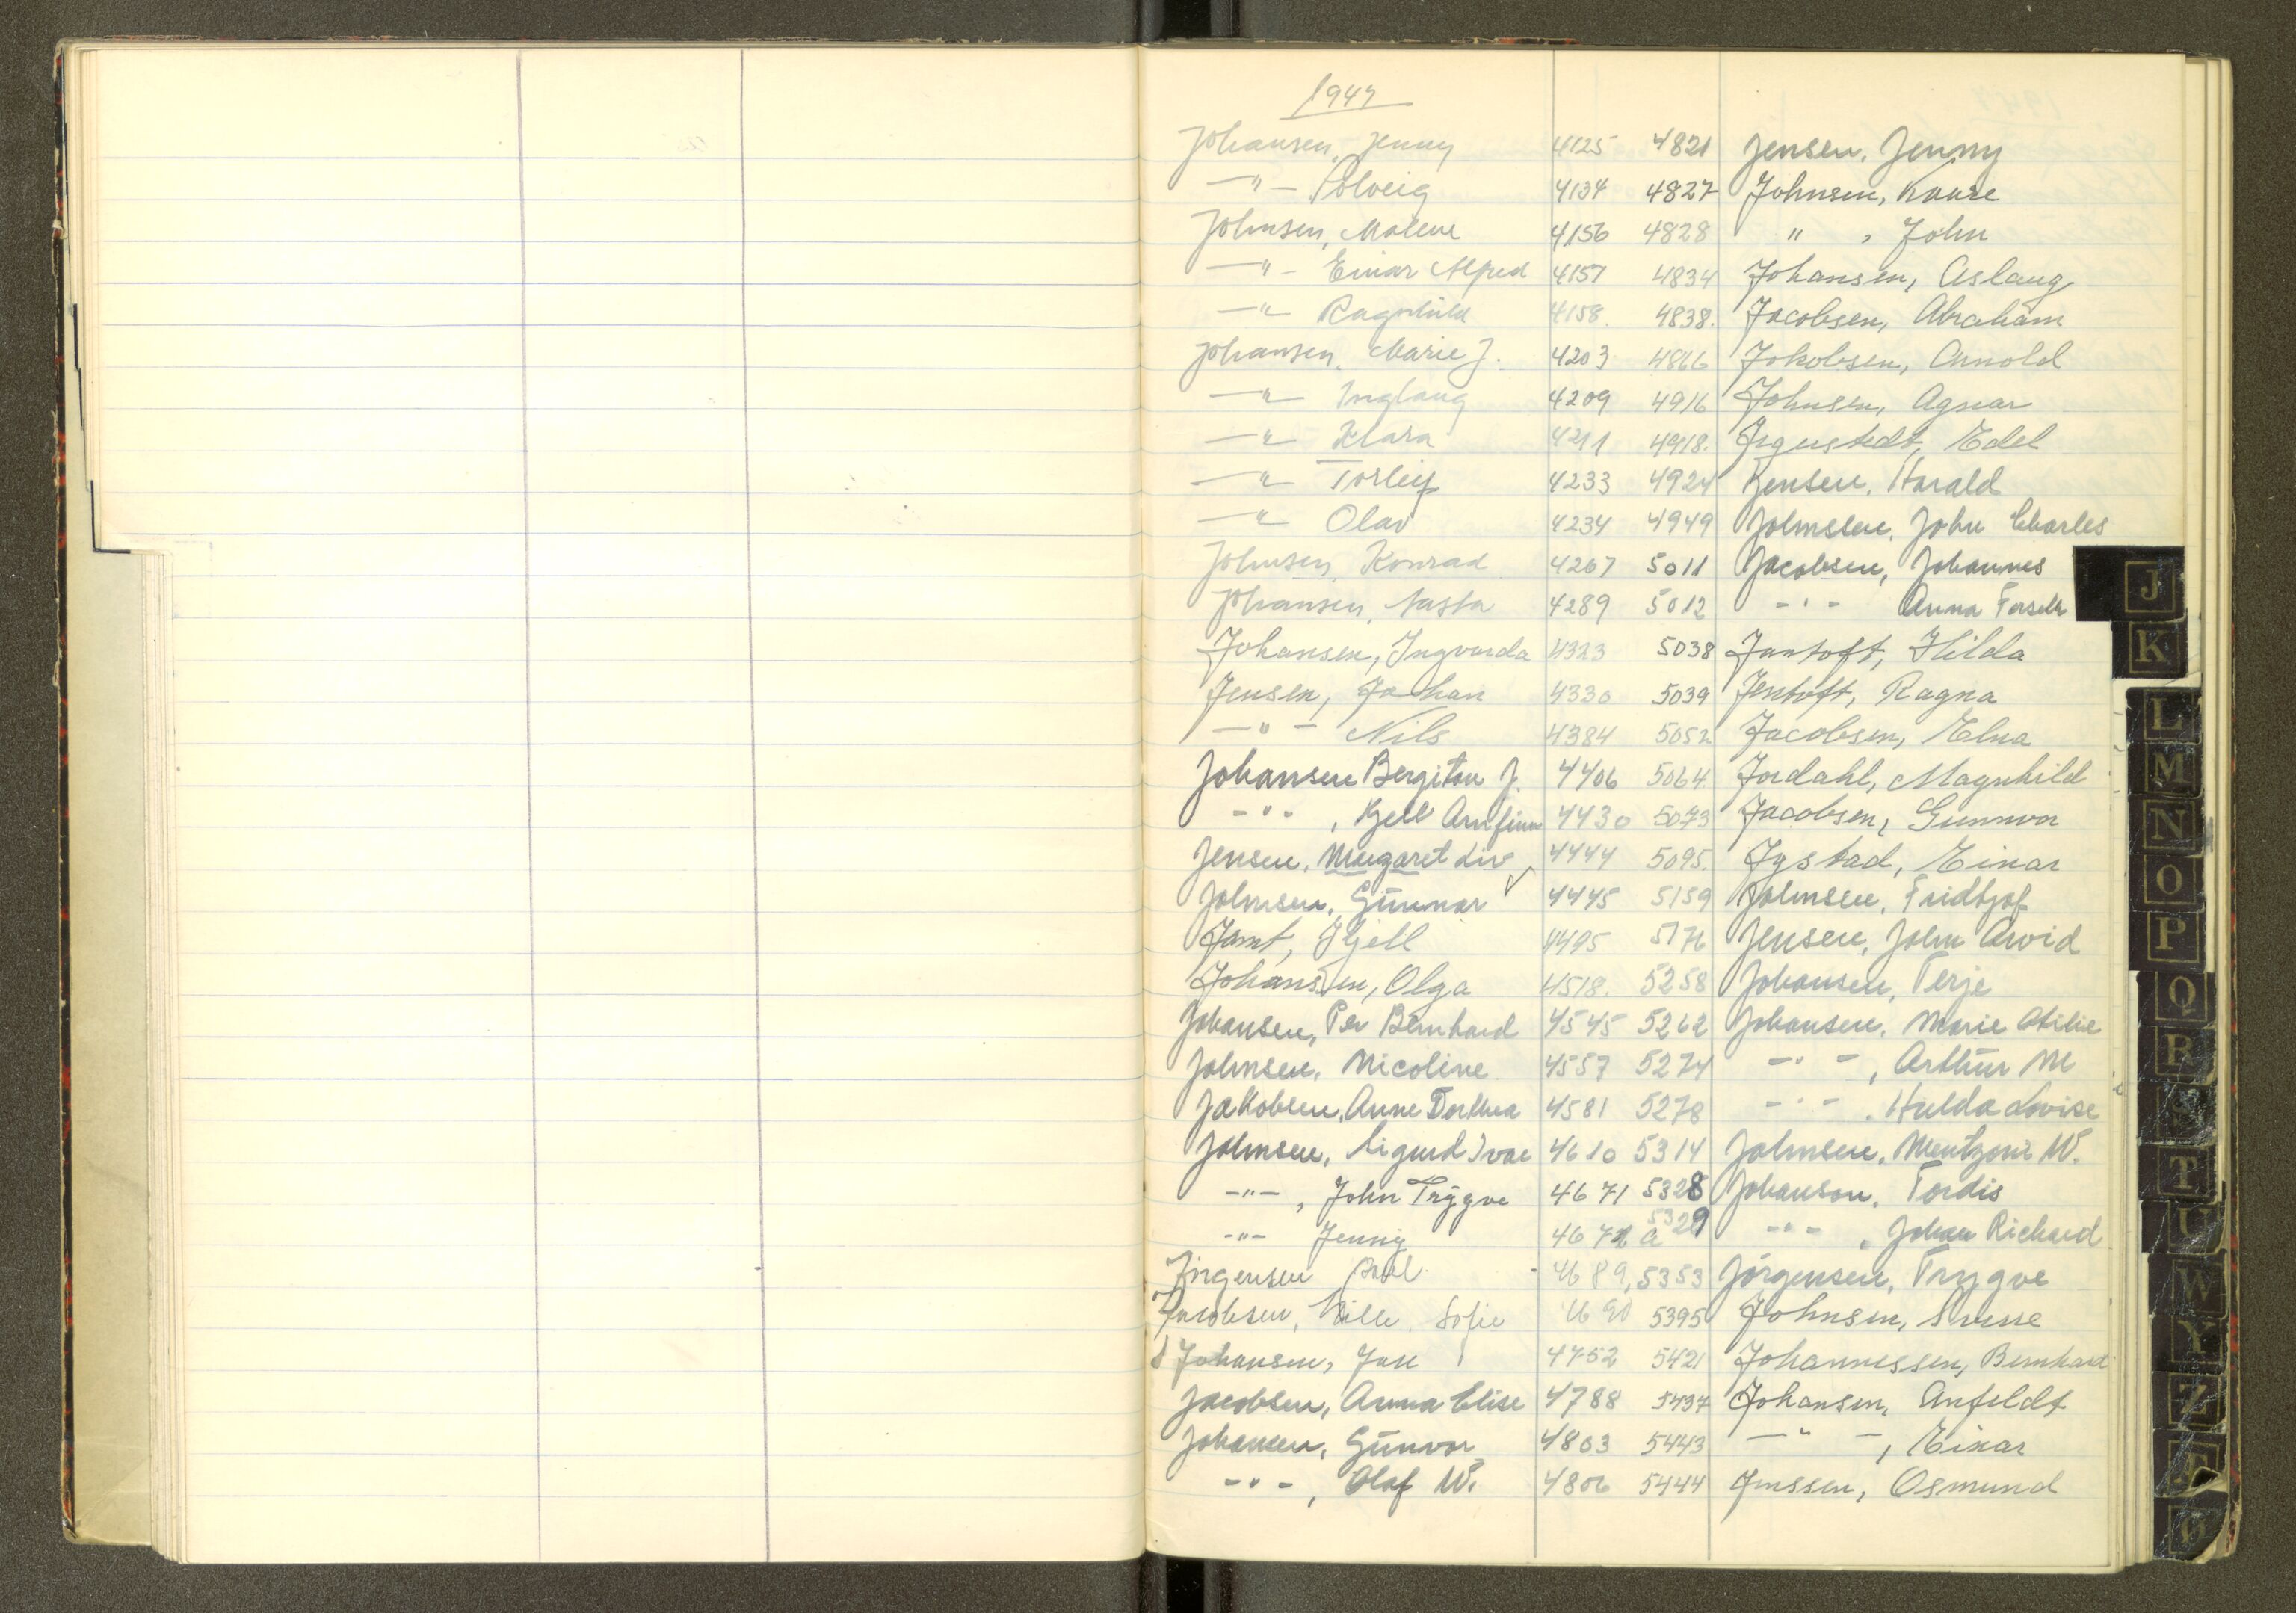 1947
Johansen, Jenny 4125 4821 Jensen, Jenny
—"— Solveig 4134 4827 Johnsen, Kaare
Johnsen, Malene 4156 4828 " , John
—"— Einar Alfred 4157 4834 Johansen, Aslaug
—"— Ragnhild 4158. 4838. Jacobsen, Abraham
Johansen, Marie J. 4203 4866 Jakobsen, Arnold
—"— Inglaug 4209 4916 Johnsen, Agnar
—"— Klara 4211 4918. Edel
—"— Torleif 4233 4924 Jensen, Harald
—"— Olav 4234 4949 Johnsen, John Charles
Johnsen, Konrad 4267 5011 Jacobsen, Johannes
Johansen, 4289 5012 -"- Anna
Johansen, Ingvarda 4323 5038 Jantoft, Hilda
Jensen, Johan 4330 5039 Jentoft, Ragna
—"— Nils 4384 5052 Jacobsen, Elna
Johansen Bergiton J. 4406 5064 Jordahl, Magnhild
-"- , Kjell Arnfinn 4430 5073 Jacobsen, Gunnvor
Jensen, Margaret Liv 4444 5095. Jystad, Einar
Johnsen, Gunnar ✓ 4445 5159 Johnsen, Fridtjof
Jamt, Kjell 4495 5176 Jensen, John Arvid
Johansen, Olga 4518. 5258 Johansen, Terje
Johansen, Per Bernhard 4545 5262 Johansen, Marie Otilie
Johnsen, Nicoline 4557 5274 -"- , Arthur M
Jakobsen, Anne Dorthea 4581 5278 -"- , Hulda Lovise
Johnsen, Sigurd Ivar 4610 5314 Johnsen, Mentzoni W.
-"- , John Trygve 4671 5328 Johanson, Tordis
-"- Jenny 4672 a 5329 -"- , Johan Richard
Jørgensen 4689, 5353 Jörgensen, Trygve
Jacobsen, Sofie 4690 5395 Johnsen, Signe
Johansen, Jan 4752 5421 Johannessen, Bernhard
Jacobsen, Anna Elise 4788 5437 Johansen, Anfeldt
Johansen, Gunvor 4803 5443 —"— , Einar
-"- , Olaf W. 4806 5444 Jenssen, Osmund
J
K
L
M
N
O
P
Q
R
S
T
U
W
Y
Z
Æ
Ö